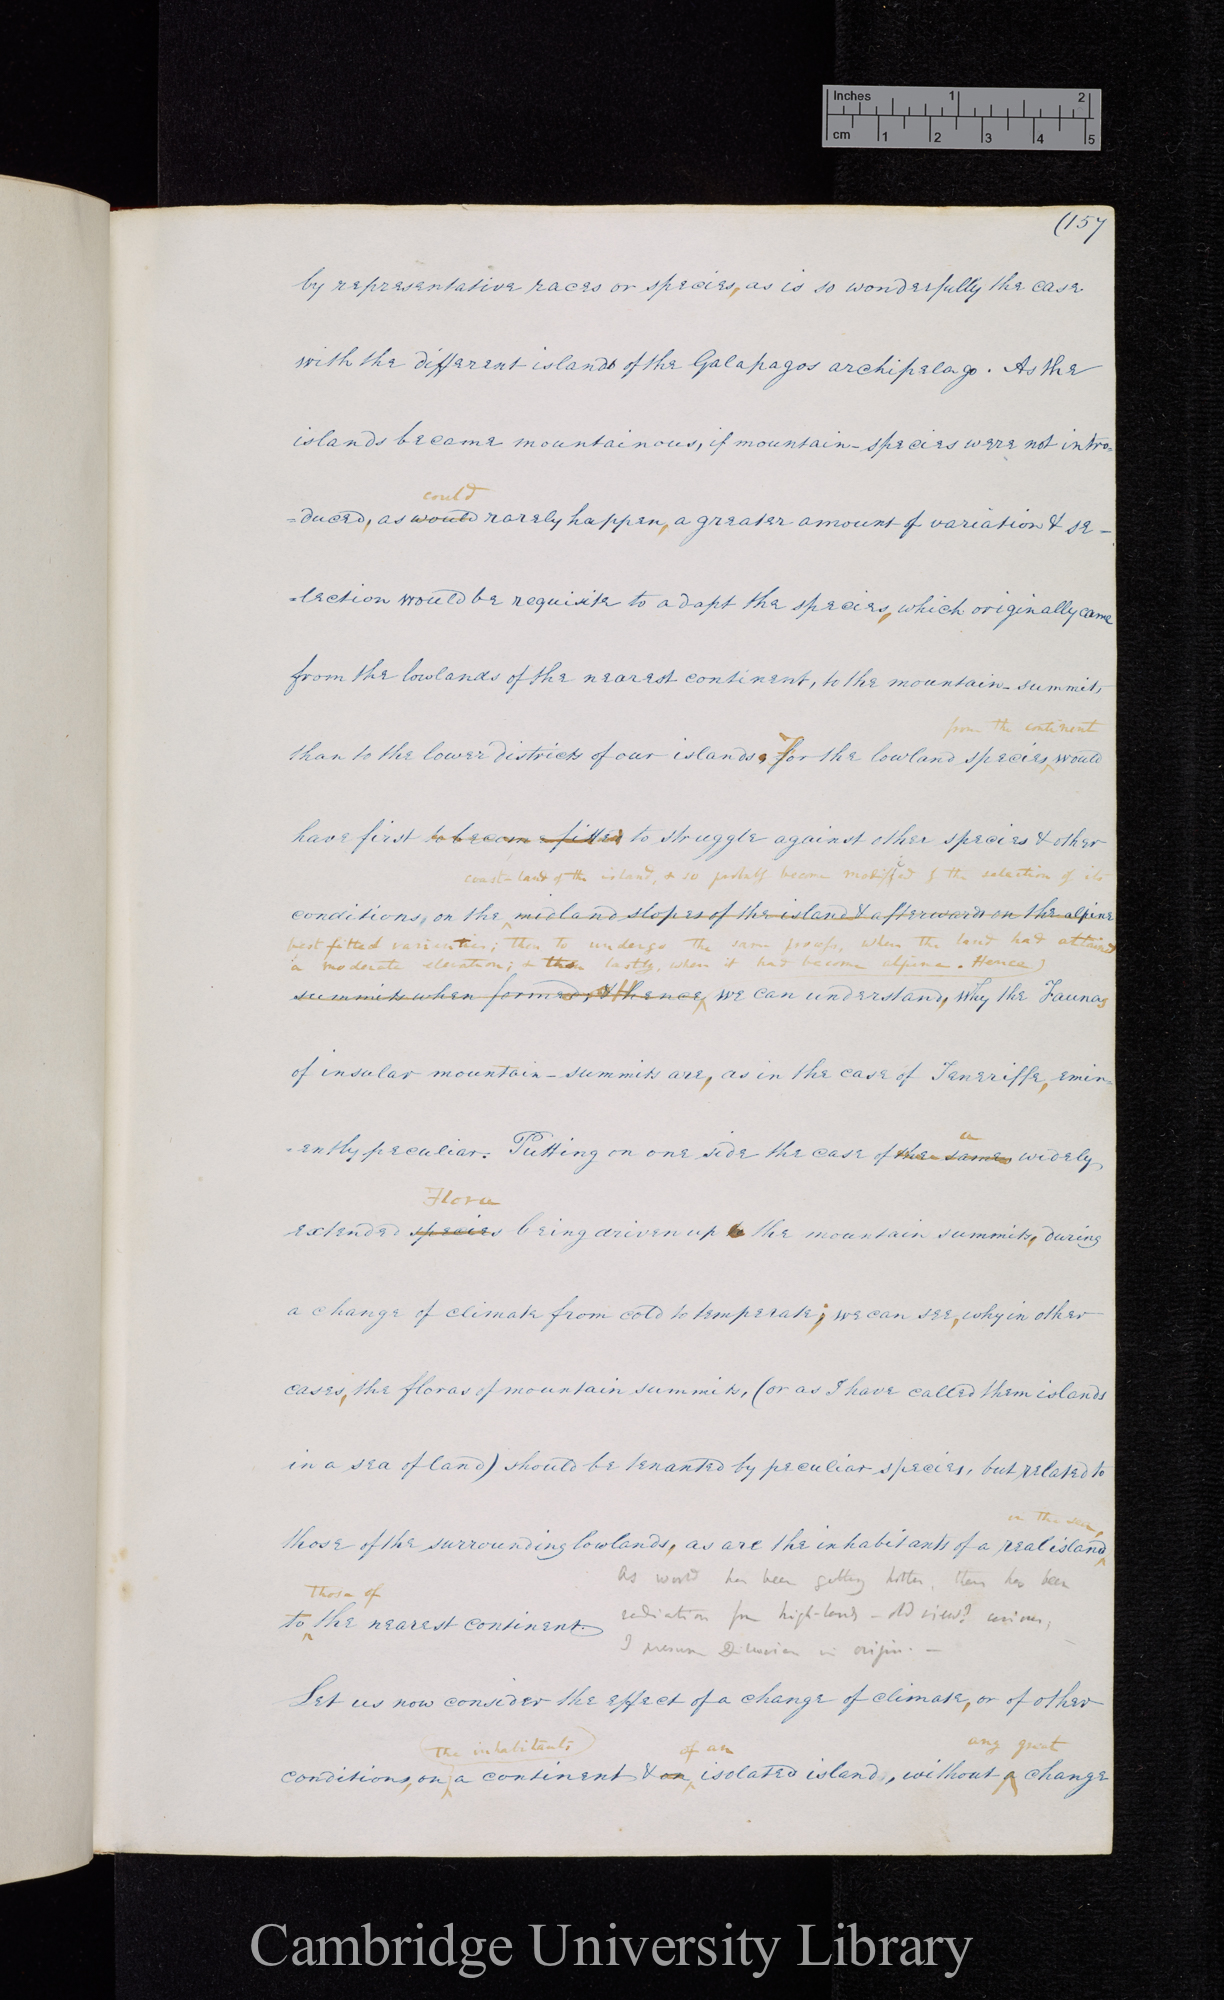 Inches 1 2
cm 1 2 3 4 5
(157
by representative races or species, as is so wonderfully the case
with the different islands of the Galapagos archipelago. As the
islands became mountainous, if mountain-species were not intro=
could
=duced, as would rarely happen, a greater amount of variation & se-
=lection would be requisite to adapt the species, which originally came
from the lowlands of the nearest continent, to the mountain-summits
from the continent
than to the lower districts of our islands. For the lowland species would
have first to become fitted to struggle against other species & other
coast-land of the island, & so probably become modified by the selection of its
conditions, on the midland slopes of the island & afterwards on the alpine
best fitted varieties; then to undergo the same process, when the land had attained
a moderate elevation; & then lastly, when it had become alpine. Hence
summits when formed, & thence, we can understand, why the Faunas
of insular mountain-summits are, as in the case of Teneriffe, emin=
=ently peculiar. Putting on one side the case of the same widely
a
Flora
extended species being driven up to the mountain summits, during
a change of climate from cold to temperate; we can see, why in other
cases, the floras of mountain summits, (or as I have called them islands
in a sea of land) should be tenanted by peculiar species, but related to
in the sea,
those of the surrounding lowlands, as are the inhabitants of a real island
As world has been getting hotter, there has been
those of
radiation from high-lands - old view? curious;
to the nearest continent.
I presume Diluvian in origin. -
Let us now consider the effect of a change of climate, or of other
the inhabitants of an any great
conditions, on a continent & an isolated island, without a change
Cambridge University Library